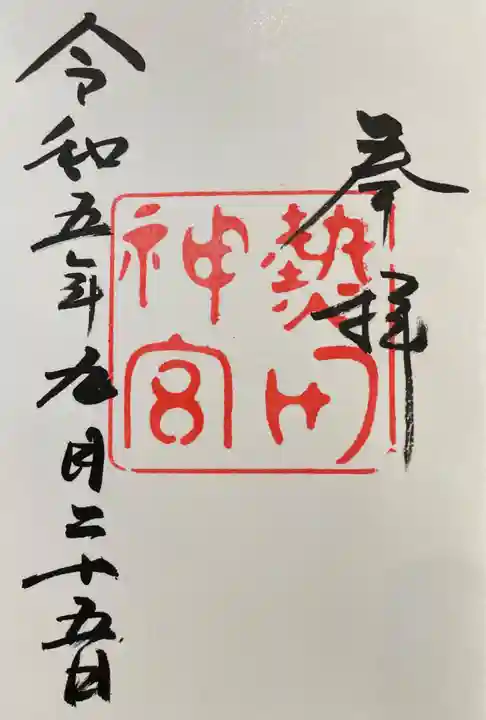 奉拝
熱田
神宮
令和五年九月二十五日